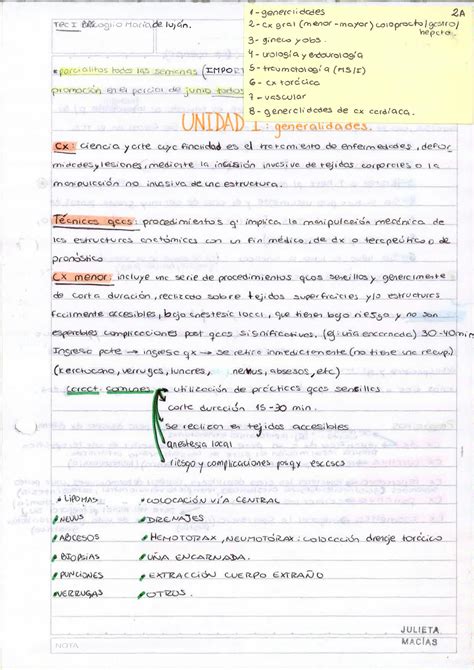 TEC I Biscoglio María de luján.
1 - generalidades 2A
2 - cx gral (menor - mayor) coloprocto/gastro/
hepato
3 - gineco y obs.
4 - urología y endourología
5 - traumatología (MS/I)
6 - cx torácica
7 - vascular
8 - generalidades de cx cardíaca.
• parcialitos todas las semanas (IMPOR
promoción en el parcial de junio todos
UNIDAD I: generalidades.
Cx: ciencia y arte cuya finalidad es el tratamiento de enfermedades, defor
midades y lesiones, mediante la incisión invasiva de tejidos corporales o la
manipulación no invasiva de una estructura.
Técnicas qcas: procedimientos q' implica la manipulación mecánica de
las estructuras anatómicas con un fin médico, de dx o terapeútico o de
pronóstico
Cx menor: incluye una serie de procedimientos qcos sencillos y generalmente
de corta duración, realizado sobre tejidos superficiales y/o estructuras
facilmente accesibles, bajo anestesia local, que tienen bajo riesgo y no son
esperables complicaciones post qcas significativas. (ej: uña encarnada) 30-40min
Ingreso pcte → ingreso qx → se retira inmediatamente (no tiene una recup)
(keratocono, verrugas, lunares, nevus, absesos, etc)
caract. comunes → utilización de prácticas qcas sencillas
corta duración 15-30 min.
se realizan en tejidos accesibles
anestesia local
riesgo y complicaciones posqx escasas
• LIPOMAS • COLOCACIÓN VÍA CENTRAL
• NEVUS • DRENAJES
• ABCESOS • HEMOTORAX, NEUMOTÓRAX: colocación drenaje torácico
• BIOPSIAS • UÑA ENCARNADA.
• PUNCIONES • EXTRACCIÓN CUERPO EXTRAÑO
• VERRUGAS • OTROS.
JULIETA
MACÍAS
NOTA